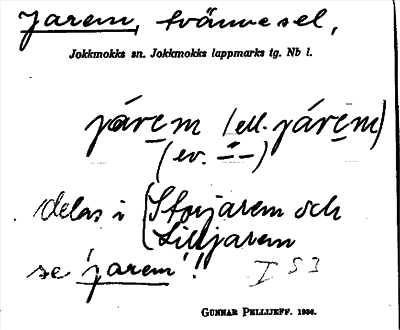 Jarem, tvänne sel,
Jokkmokks sn. Jokkmokks lappmarks tg. Nb l.
járem (ell. járem)
(ev. – –)
delas i {Storjarem och
Lilljarem
se 'jarem'!
I 53
GUNNAR PELLIJEFF. 1936.